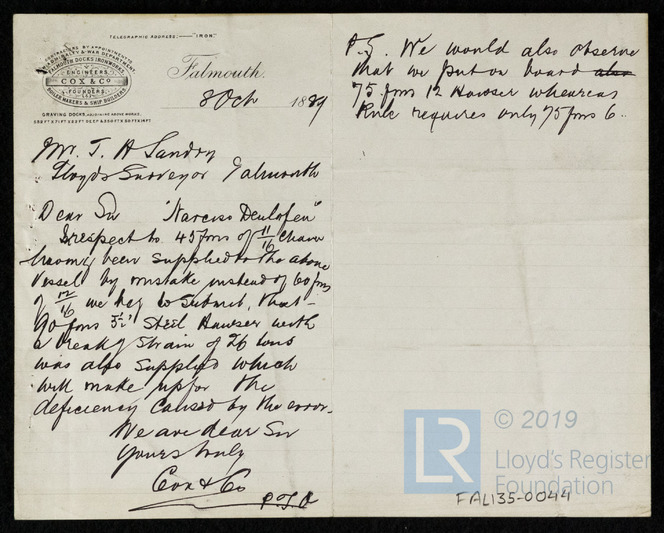 TELEGRAPHIC ADDRESS:—"IRON"
CONTRACTORS BY APPOINTMENT TO
ADMIRALTY & WAR DEPARTMENT
FALMOUTH DOCKS IRONWORKS,
ENGINEERS,
COX & Co
FOUNDERS,
BOILER MAKERS & SHIP BUILDERS
GRAVING DOCKS, ADJOINING ABOVE WORKS,
Falmouth.
8 Oct 1889
Mr. J. H Sandry
Lloyds Surveyor Falmouth
Dear Sir "Narciso Deulofeu"
In respect to 45 fms of 11/16 chain
having been supplied to the above
Vessel by mistake instead of 60 fms
of 12/16 we beg to submit, that
90 fms 5½" Steel Hawser with
a breakg strain of 26 tons
was also supplied which
will make up for the
deficiency caused by the error.
We are dear Sir
Yours truly
Cox & Co
P.T.O
P.S. We would also observe
that we put on board also
75 fms 12 Hawser whereas
Rule requires only 75 fms 6..
LR
© 2019
Lloyd's Register
Foundation
FAL135-0044